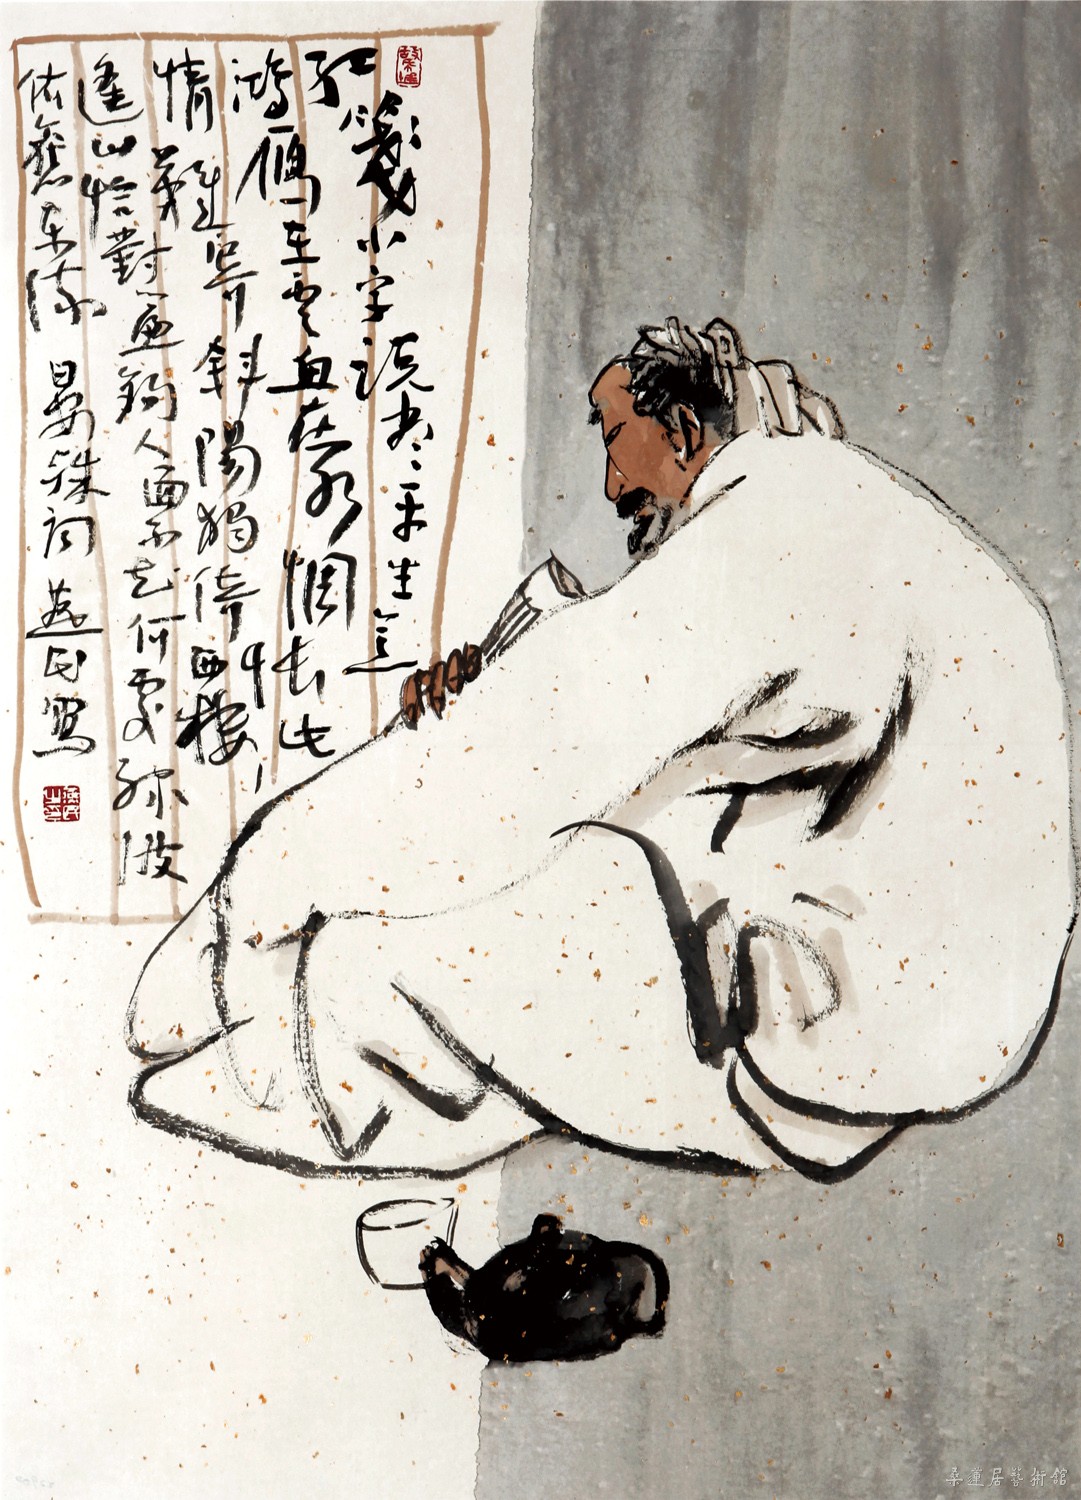 紅箋小字说尽平生意
鴻雁在雲鱼在水惆怅此
情難寄斜陽獨倚西樓
遥山恰對簾鉤人面不知何處緑波
依舊东流 晏殊词 民寫
桑蓮居藝術館